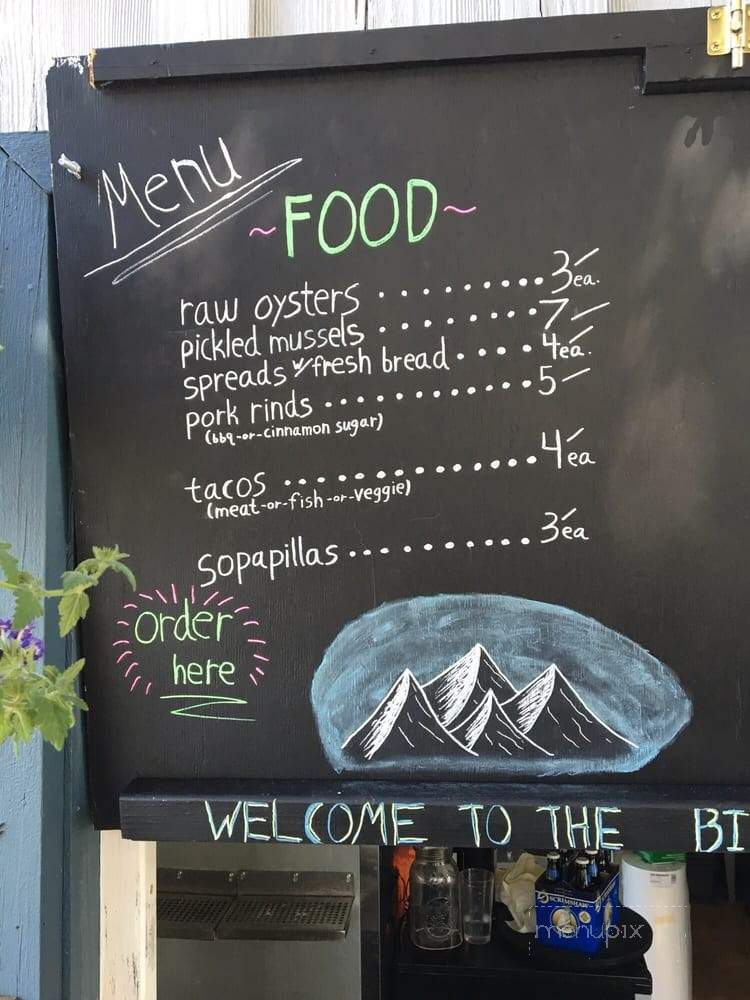 Menu
~FOOD~
raw oysters ......... 3 ea.
pickled mussels ......... 7
spreads w/ fresh bread .... 4 ea.
pork rinds ............ 5
(bbq-or-cinnamon sugar)
tacos ............. 4 ea
(meat-or-fish-or-veggie)
sopapillas .......... 3 ea
order
here
WELCOME TO THE BI
SCRIMSHAW
menupix